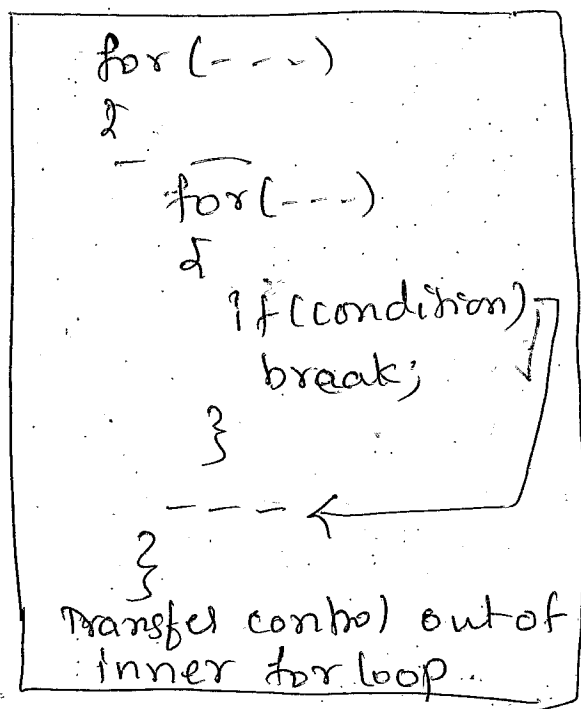 for (---)
{
for (---)
{
if (condition)
break;
}
---
}
Transfer control out of
inner for loop..